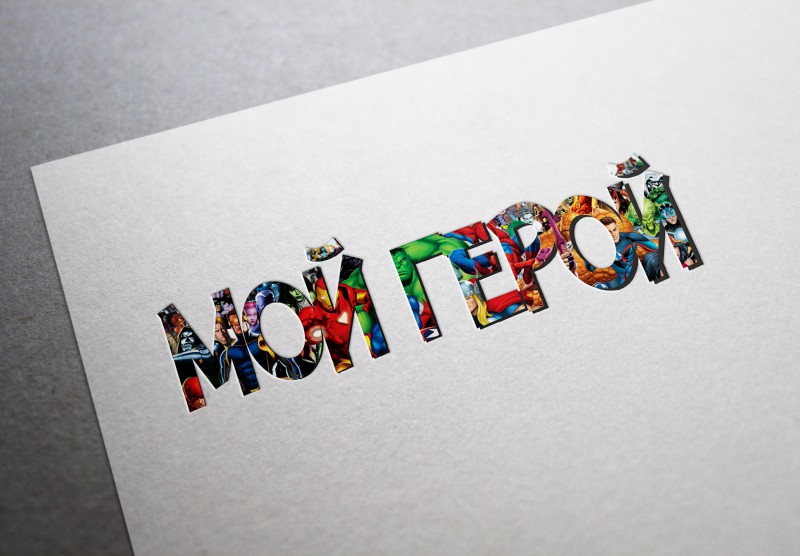 МОЙ ГЕРОЙ